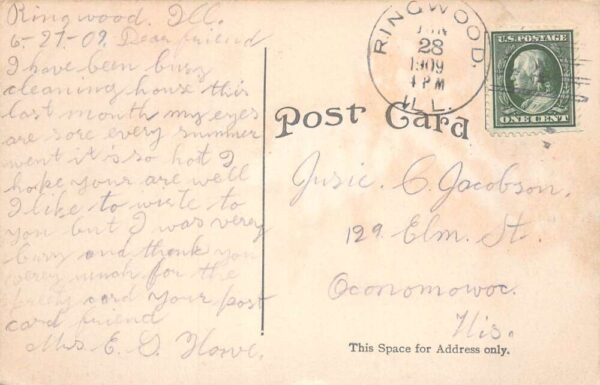 Ringwood. Ill.
6-27-09. Dear friend
I have been busy
cleaning house this
last month my eyes
are sore every summer
went it is so hot I
hope your are well
I like to write to
you but I was verey
busy and thank you
verey much for the
prety card your post
card friend
Mrs E. O. Howe.
RINGWOOD.
JUN
28
1909
4 PM
ILL.
U.S. POSTAGE
ONE CENT
Post Card
Jusie. C. Jacobson.
129. Elm. St.
Oconomowoc.
Wis.
This Space for Address only.